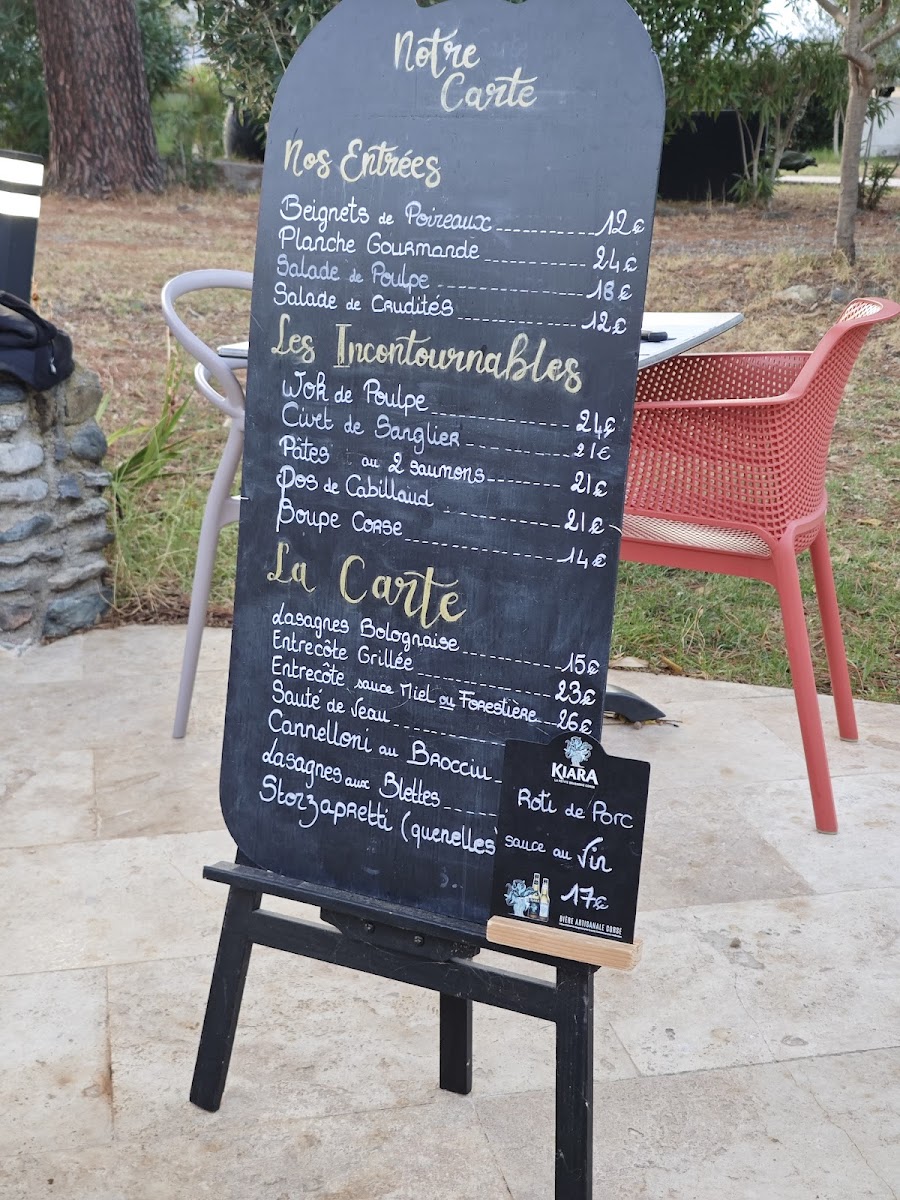 Notre
Carte
Nos Entrées
Beignets de Poireaux 12€
Planche Gourmande 24€
Salade de Poulpe 18€
Salade de Crudités 12€
Les Incontournables
Wok de Poulpe 24€
Civet de Sanglier 21€
Pâtes au 2 saumons 21€
Dos de Cabillaud 21€
Soupe Corse 14€
La Carte
Lasagnes Bolognaise 15€
Entrecôte Grillée 23€
Entrecôte sauce Miel ou Forestière 26€
Sauté de Veau
Cannelloni au Brocciu
Lasagnes aux Blettes
Storzapretti (quenelles
KIARA
Roti de Porc
sauce au Vin
17€
BIÈRE ARTISANALE CORSE